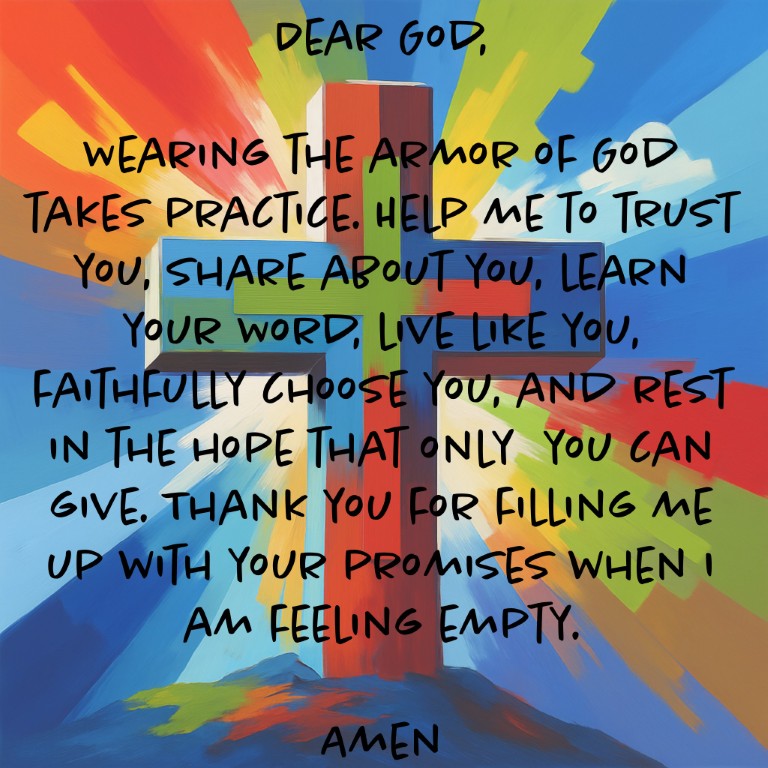 DEAR GOD,
WEARING THE ARMOR OF GOD
TAKES PRACTICE. HELP ME TO TRUST
YOU, SHARE ABOUT YOU, LEARN
YOUR WORD, LIVE LIKE YOU,
FAITHFULLY CHOOSE YOU, AND REST
IN THE HOPE THAT ONLY YOU CAN
GIVE. THANK YOU FOR FILLING ME
UP WITH YOUR PROMISES WHEN I
AM FEELING EMPTY.
AMEN